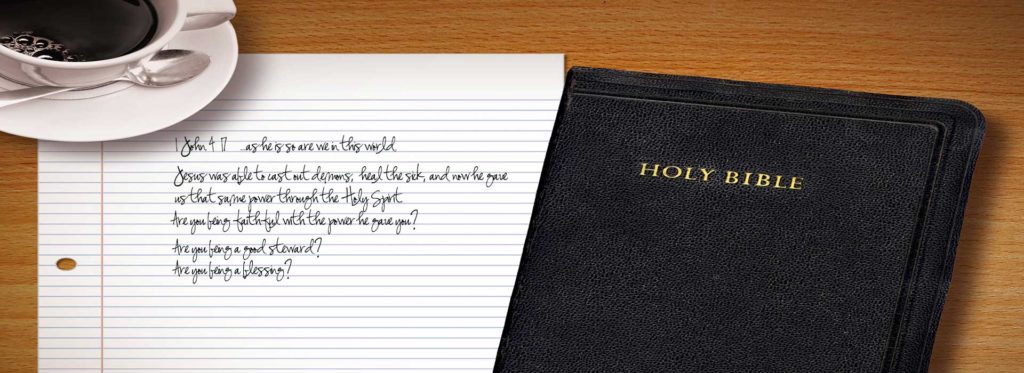 1 John 4 17 ...as he is so are we in this world
Jesus was able to cast out demons, heal the sick, and now he gave
us that same power through the Holy Spirit
Are you being faithful with the power he gave you?
Are you being a good steward?
Are you being a blessing?
HOLY BIBLE